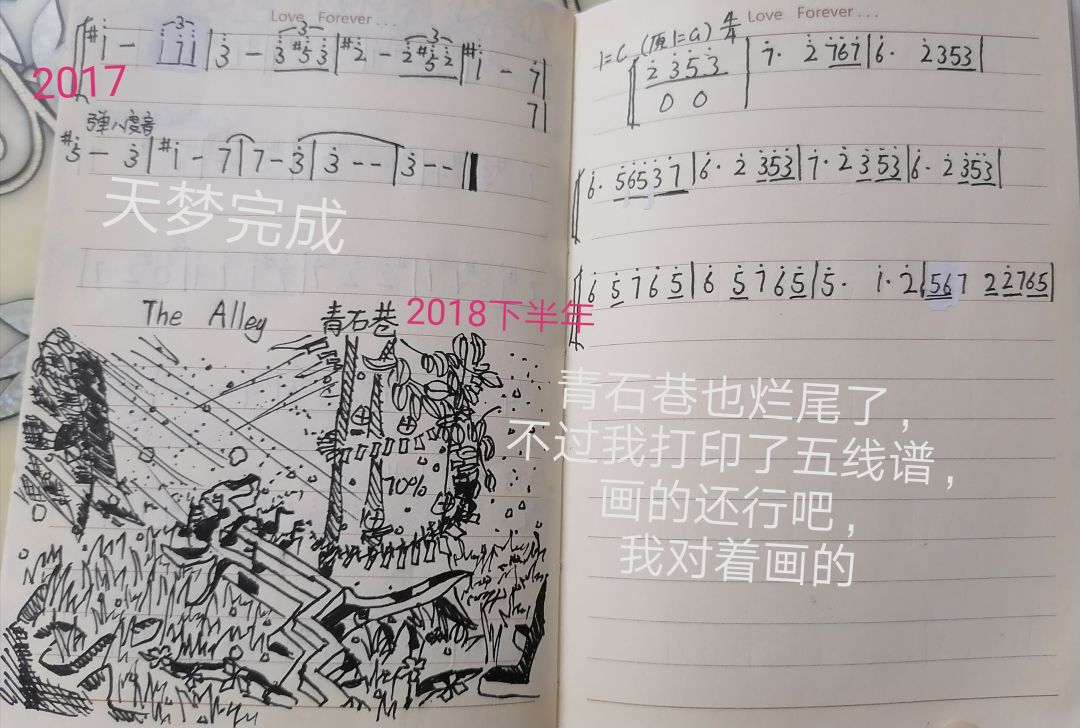 Love Forever...
#i - i 7 i | 3 - 3 #5 3 | #2 - 2 #5 2 | #i - 7
3
3
3
2017
7
弹八度音
#5 - 3 | #i - 7 | 7 - 3 | 3 - - | 3 - - ‖
天梦完成
The Alley
青石巷
2018下半年
70%
Love Forever...
1=C (原1=G) 4/4
2 3 5 3 | 7· 2 767 | 6· 2353 |
0 0
6· 56537 | 6· 2 353 | 7· 2 353 | 6· 2 353 |
6 5 7 6 5 | 6 5 7 6 5 | 5· i· 2 | 567 22765 |
青石巷也烂尾了，
不过我打印了五线谱，
画的还行吧，
我对着画的